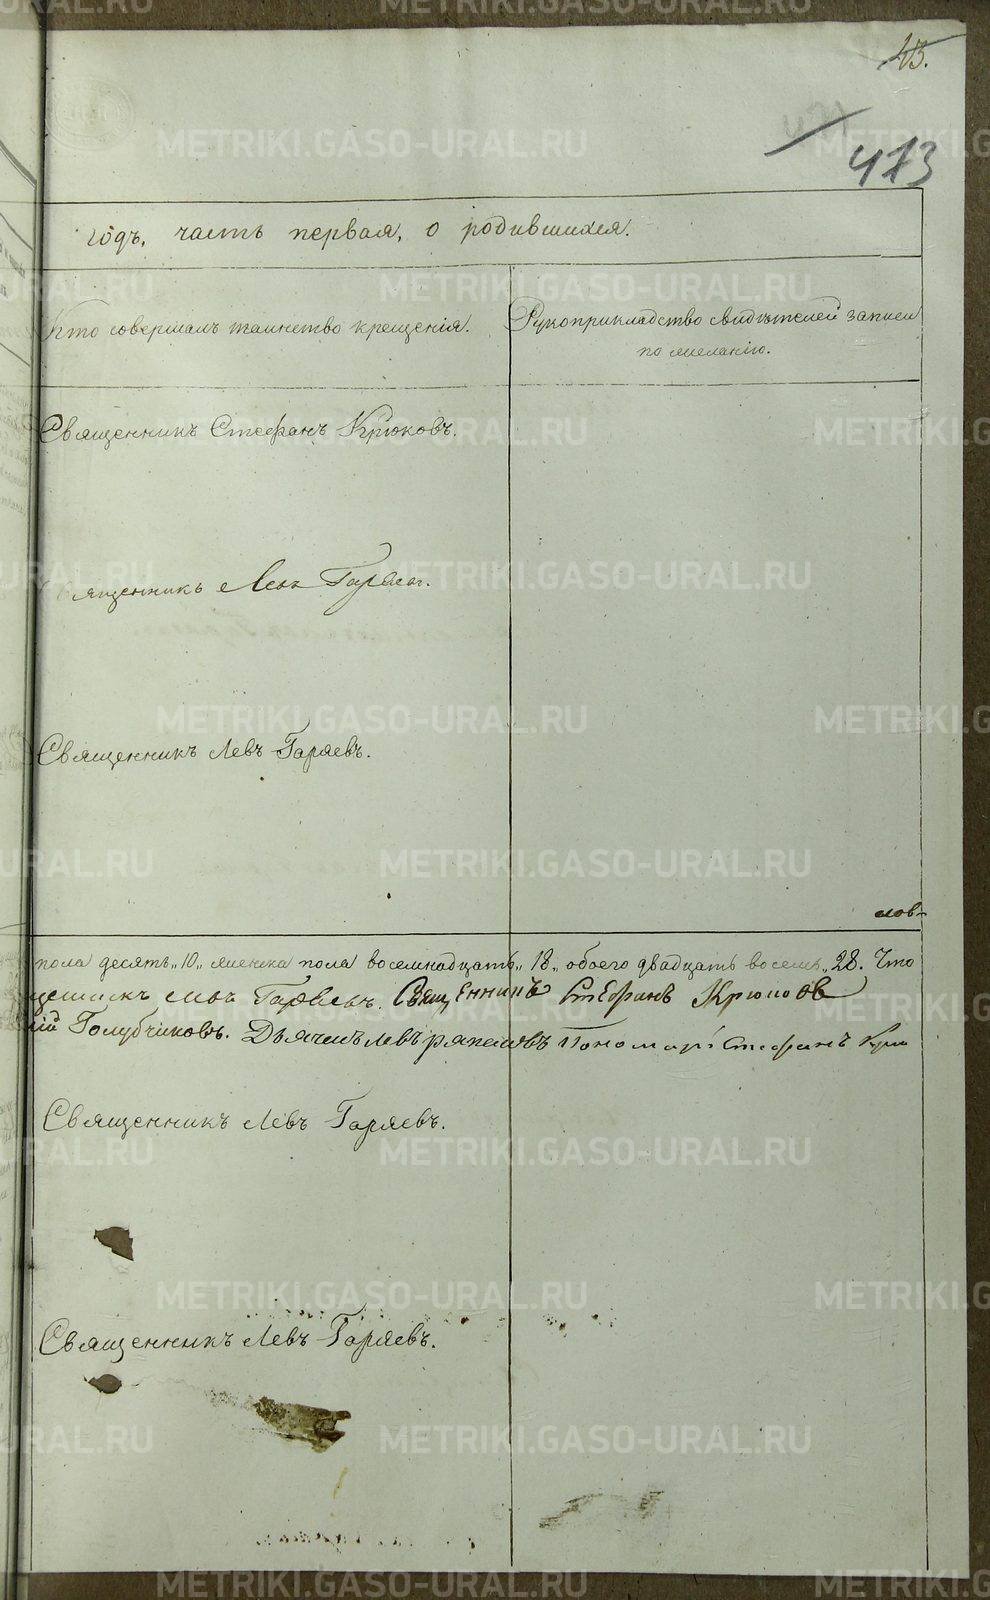 43.
473
годъ, часть первая, о родившихся.
Кто совершалъ таинство крещенія.
Рукоприкладство свидѣтелей записи
по желанію.
Священникъ Стефанъ Крюковъ.
Священникъ Левъ Гаряевъ.
Священникъ Левъ Гаряевъ.
пола десять „10„ женска пола восемнадцать „18„ обоего двадцать восемь „28. Что
Левъ Гаряевъ. Священникъ Стефанъ Крюковъ
Голубчиковъ. Дьячекъ Левъ Пономарь Стефанъ
Священникъ Левъ Гаряевъ.
Священникъ Левъ Гаряевъ.
METRIKI.GASO-URAL.RU